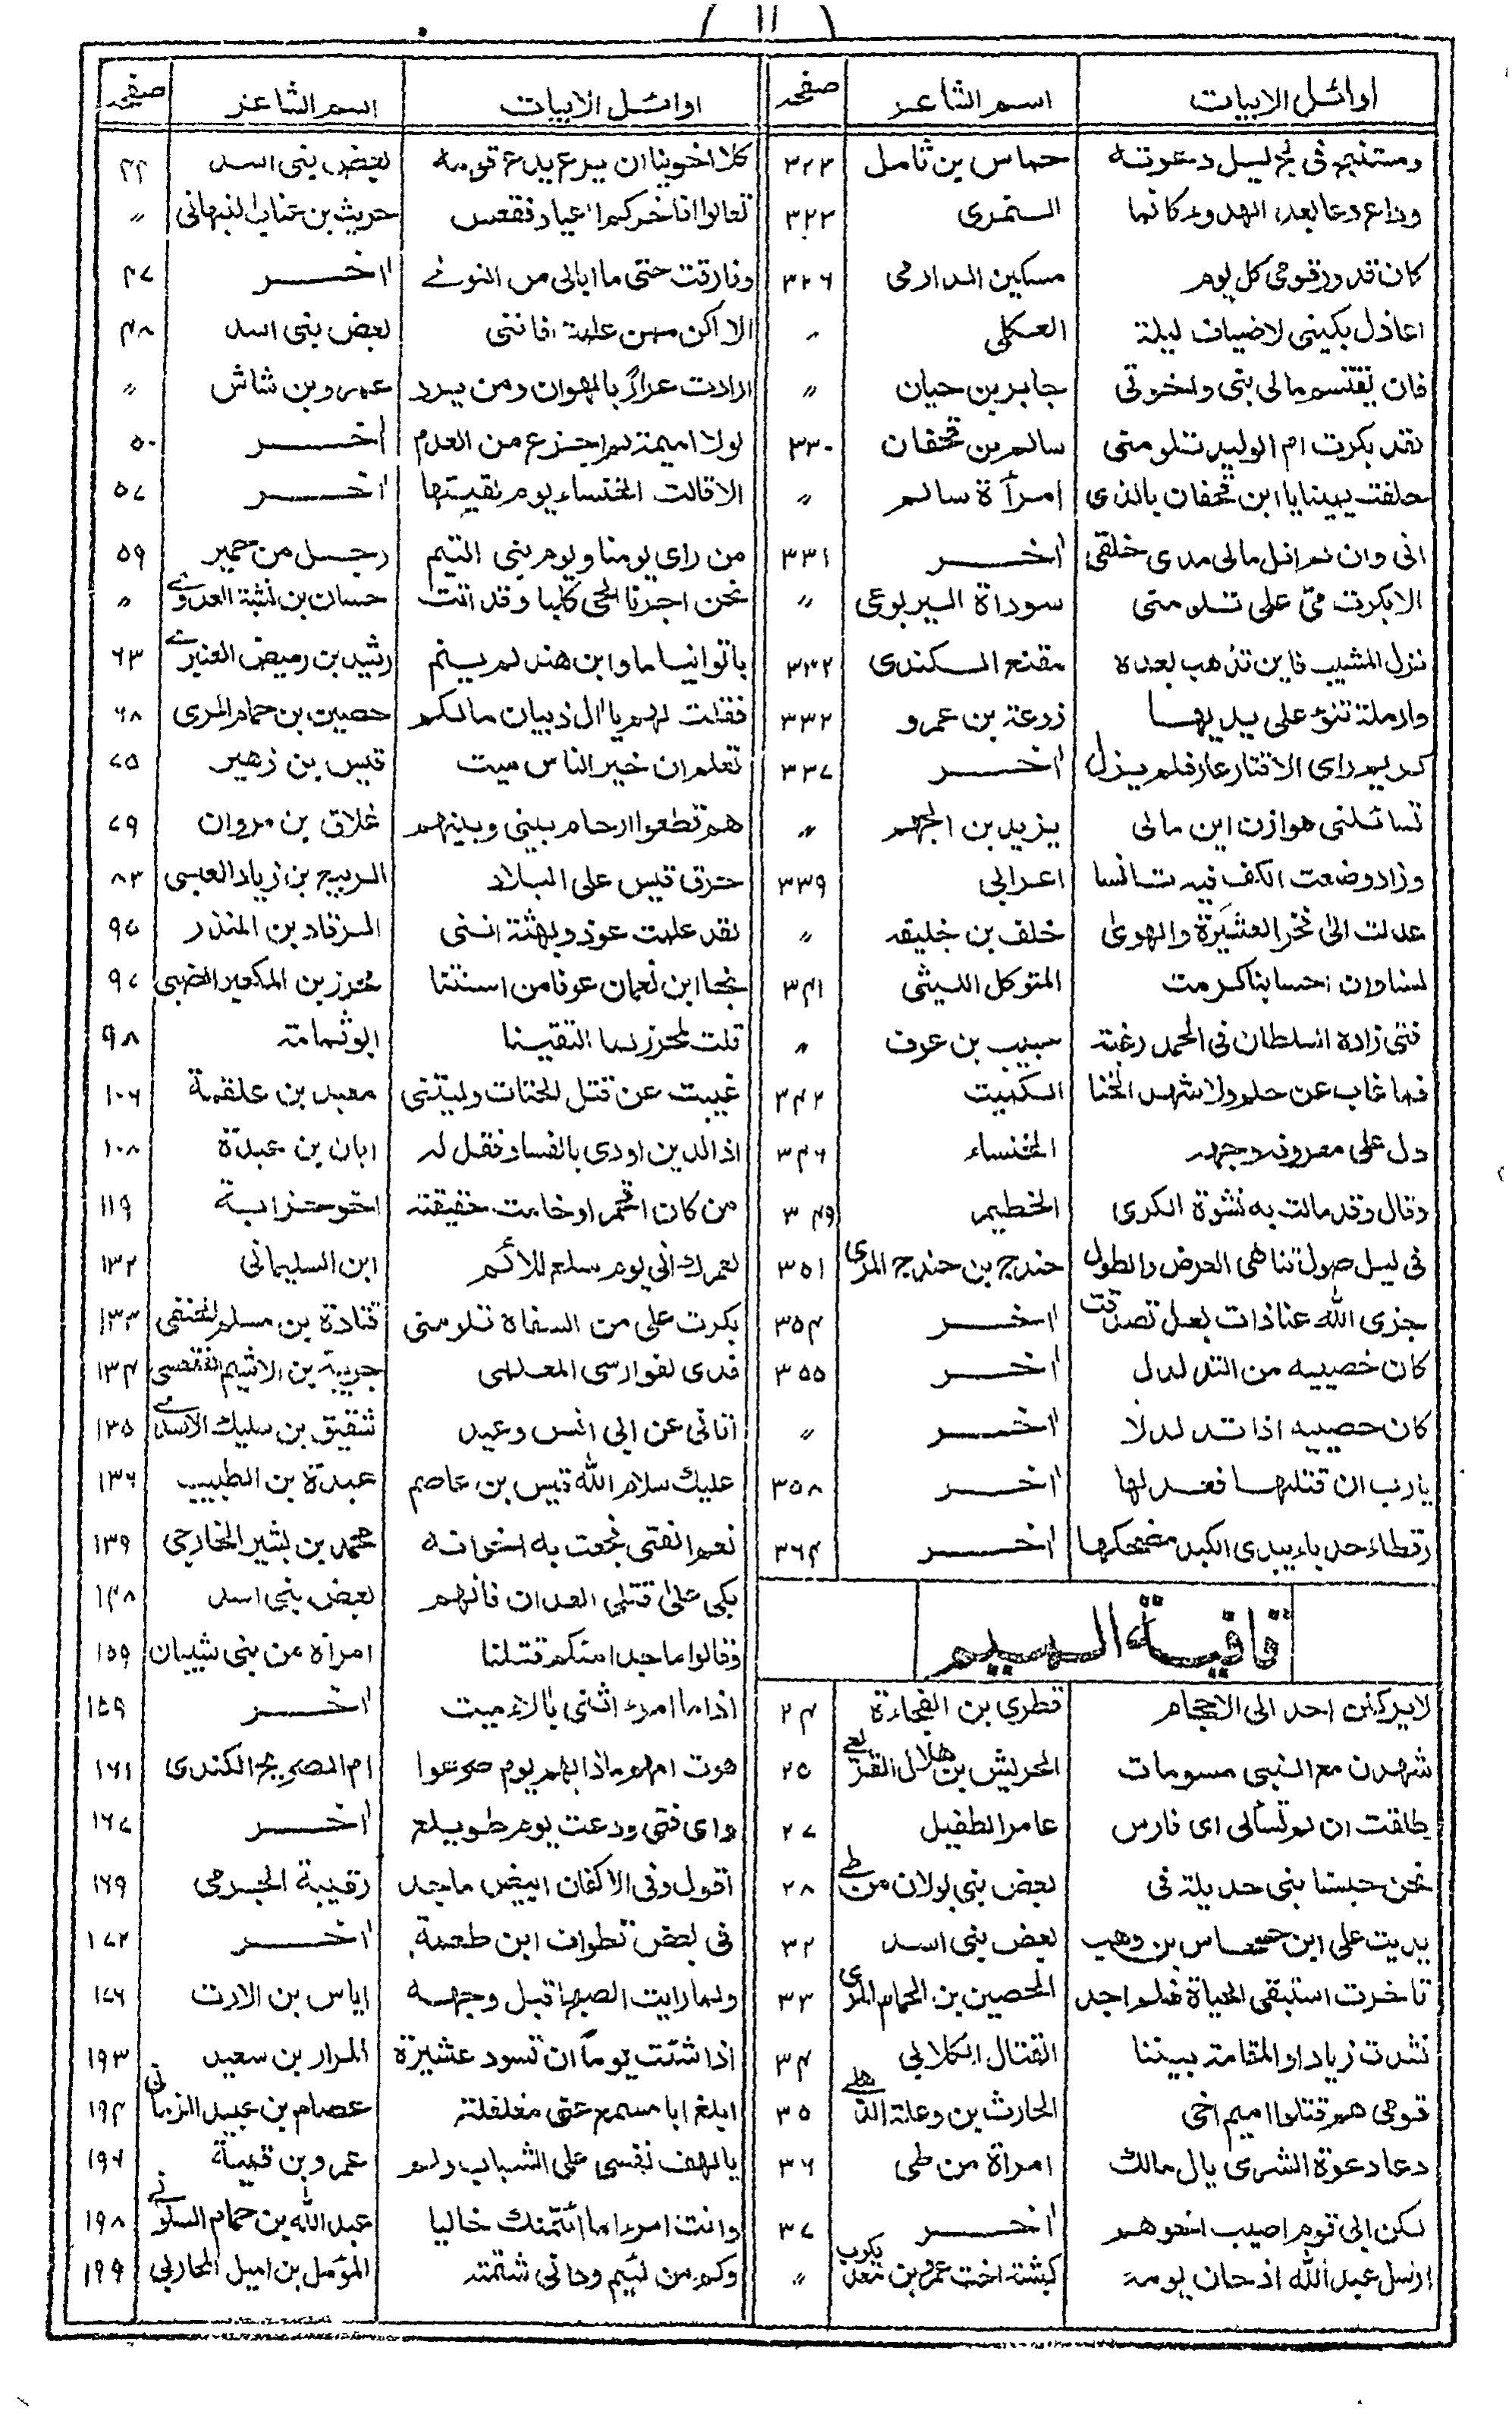 ( ١١ )
اوائل الابيات اسم الشاعر صفحہ
ومستنبح فی لج ليل دعوته حماس بن ثامل ٣٢٣
وداع دعا بعد الهدو كانما النمری ٣٢٣
كان قدور قومی كل يوم مسكين الدارمی ٣٢٦
اعاذل بكينی لاضياف ليلة العكلی ״
فان يقتسم مالی بنی واخوتی جابر بن حيان ״
لقد بكرت ام الوليد تلومنی سالم بن قحفان ٣٣٠
حلفت يمينا يا ابن قحفان بالذی امرأة سالم ״
انی وان لم انل مالی مدی خلقی اخر ٣٣١
الا بكرت می علی تلومنی سوداة اليربوعی ״
نزل المشيب فاين تذهب بعده مقنع الكندی ٣٣٢
وارملة تنوء علی يديها زرعة بن عمرو ٣٣٢
كريم رای الاقتار عار فلم يزل اخر ٣٣٧
تسائلنی هوازن اين مالی يزيد بن الجهم ״
وزاد وضعت الكف فيه تانسا اعرابی ٣٣٩
عدلت الی فخر العشيرة والهوی خلف بن خليفه ״
لسنا وان احسابنا كرمت المتوكل الليثی ٣٤١
فتی زاده السلطان فی الحمد رغبة حبيب بن عوف ״
فما غاب عن حلم ولا شهد الخنا الكميت ٣٤٢
دل علی معروفه وجهه الخنساء ٣٤٦
وقال وقد مالت به نشوة الكری الخطيم ٣٤٩
فی ليل صول تناهی العرض والطول حندج بن حندج المری ٣٥١
جزی الله عنا ذات بعل تصدقت اخر ٣٥٤
كان خصييه من التدلدل اخر ٣٥٥
كان خصييه اذا تدلدلا اخر ״
يارب ان قتلها فعد لها اخر ٣٥٨
رقطاء حدباء يبدی الكبد مضحكها اخر ٣٦٤
قافية الميم
لا يركنن احد الی الاحجام قطری بن الفجاءة ٢٤
شهدن مع النبی مسومات الحريش بن هلال القريعی ٢٥
طلقت ان لم تسألی ای فارس عامر الطفيل ٢٧
نحن حبسنا بنی جديلة فی بعض بنی بولان من طے ٢٨
يديت علی ابن حسحاس بن وهب بعض بنی اسد ٣٢
تاخرت استبقی الحياة فلم اجد الحصين بن الحمام المری ٣٣
نشدت زيادا والمقامة بيننا القتال الكلابی ٣٤
قومی هم قتلوا اميم اخی الحارث بن وعلة الذهلے ٣٥
دعا دعوة الشری يال مالك امراة من طی ٣٦
لكن ابی قوم اصيب اخوهم اخر ٣٧
ارسل عبد الله اذ حان يومه كبشة اخت عمرو بن معديكرب ״
اوائل الابيات اسم الشاعر صفحہ
كلا اخوينا ان يرع يدع قومه بعض بنی اسد ٤٤
تعالوا افاخركم اعيا وفقعس حريث بن عناب النبهانی ״
وفارقت حتی ما ابالی من النوے اخر ٤٧
الا اكن ممن علمت فاننی بعض بنی اسد ٤٨
ارادت عرارا بالهوان ومن يرد عمرو بن شاش ״
لولا اميمة لم اجزع من العدم اخر ٥٠
الا قالت الخنساء يوم لقيتها اخر ٥٧
من رای يومنا ويوم بنی التيم رجل من حمير ٥٩
نحن اجرنا الحی كلبا وقد اتت حسان بن نشبة العدوے ״
باتوا نياما وابن هند لم ينم رشيد بن رميض العنبرے ٦٣
فقلت لهم يا ال ذبيان مالكم حصين بن حمام المری ٦٨
تعلم ان خير الناس ميت قيس بن زهير ٧٥
هم قطعوا ارحام بينی وبينهم غلاق بن مروان ٧٩
حرق قيس علی البلاد الربيع بن زياد العبسی ٨٣
لقد علمت عوذ وبهثة اننی الرقاد بن المنذر ٩٤
نجا ابن نعمان عوفا من اسنتنا محرز بن المكعبر الضبی ٩٧
قلت لمحرز لما التقينا ابو ثمامة ٩٨
غيبت عن قتل الحتات وليتنی معبد بن علقمة ١٠٦
اذ الدين اودی بالفساد فقل له ابان بن عبدة ١٠٨
من كان اقحم او خامت حقيقته اخو حزابة ١١٩
لعمرك انی يوم سلع للائم ابن السليمانی ١٣٢
بكرت علی من السفاة تلومنی قتادة بن مسلم الحنفی ١٣٣
فدی لفوارسی المعلمی جريبة بن الاشيم الفقعسی ١٣٤
اتانی عن ابی انس وعيد شقيق بن سليك الاسدے ١٣٥
عليك سلام الله قيس بن عاصم عبدة بن الطبيب ١٣٦
نعم الفتی فجعت به اخوانه محمد بن بشير الخارجی ١٣٩
بكی علی قتلی العدان فانهم بعض بنی اسد ١٤٨
وقالوا ماجدا منكم قتلنا امراة من بنی شيبان ١٥٩
اذا ما امرء اثنی بالاء ميت اخر ١٥٩
هوت امهم ماذا بهم يوم صرعوا ام الصريح الكندی ١٦١
وای فتی ودعت يوم طويلع اخر ١٦٧
اقول وفی الاكفان ابيض ماجد رقيبة الجرمی ١٦٩
فی بعض تطواف ابن طعمة اخر ١٧٢
ولما رايت الصبح اقبل وجهه اياس بن الارت ١٧٦
اذا شئت يوماً ان تسود عشيرة المرار بن سعيد ١٩٣
ابلغ ابا مسمع عنی مغلغلة عصام بن عبيد الزمانی ١٩٤
يا لهف نفسی علی الشباب ولم عمرو بن قميئة ١٩٦
وانت امرء اما ائتمنتك خاليا عبد الله بن حمام السلولی ١٩٨
وكم من لئيم ودانی شتمته المؤمل بن اميل المحاربی ١٩٩